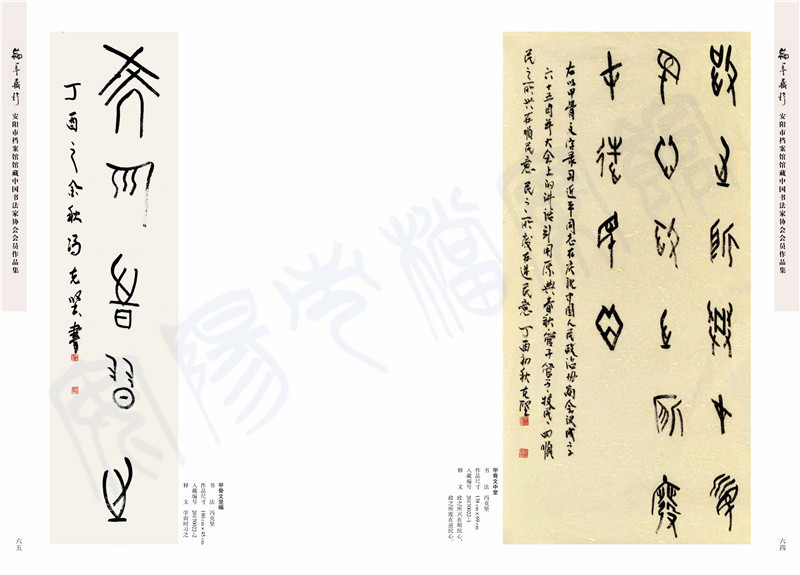 安阳市档案馆馆藏中国书法家协会会员作品集
政之所兴在顺
民心政之所废
在逆民心
右以甲骨文字录习近平同志在庆祝中国人民政治协商会议成立
六十五周年大会上的讲话引用原典春秋管子管子牧民四顺
民之所兴在顺民意民之所废在逆民意 丁酉初秋克坚
甲骨文中堂
书 法 冯克坚
作品尺寸 138 cm×69 cm
入藏编号 20170022-1
释 文 政之所兴在顺民心，
政之所废在逆民心。
六四
学而时习之
丁酉之余秋冯克坚书
甲骨文竖幅
书 法 冯克坚
作品尺寸 180 cm×45 cm
入藏编号 20170022-2
释 文 学而时习之
安阳市档案馆馆藏中国书法家协会会员作品集
六五